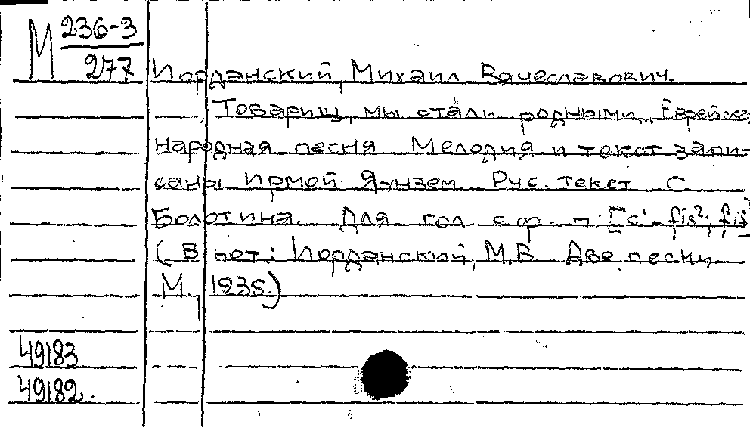 М 236-3
277 Иорданский, Михаил Вячеславович.
Товарищ, мы стали родными. Еврейская
народная песня Мелодия и текст запи-
саны Ирмой Яунзем. Рус. текст С.
Болотина. Для гол. с ф-п. [c¹-fis²; fis
(В нот: Иорданский, М.В. Две песни
М., 1938.)
49183
49182.